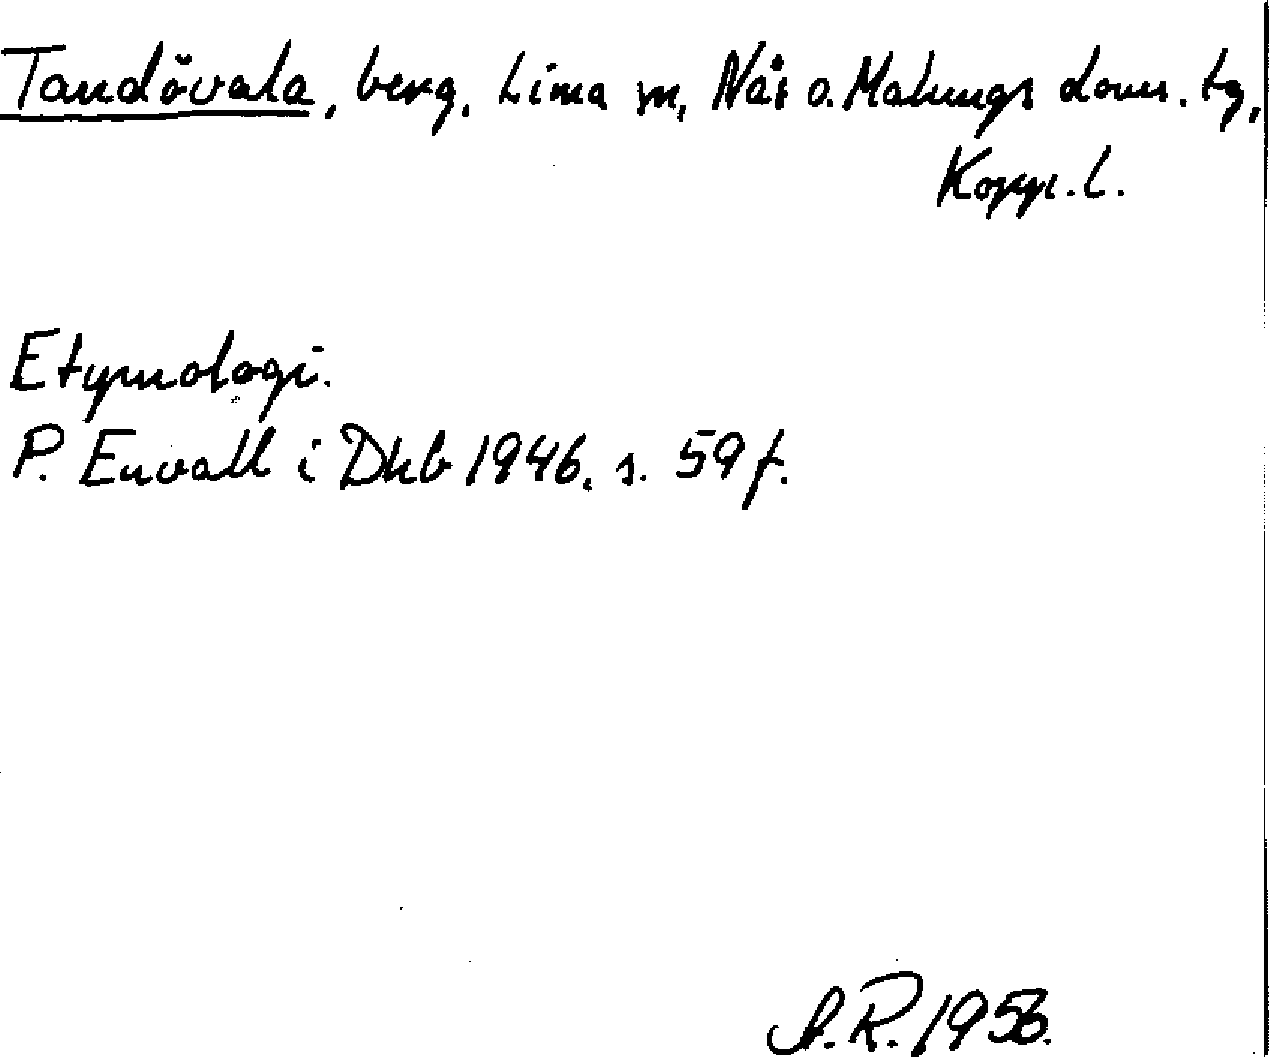 Tandövala, berg, Lima sn, Nås o. Malungs doms. tg,
Kopp. l.
Etymologi.
P. Envall i Dhb 1946, s. 59 f.
A.R. 1956.